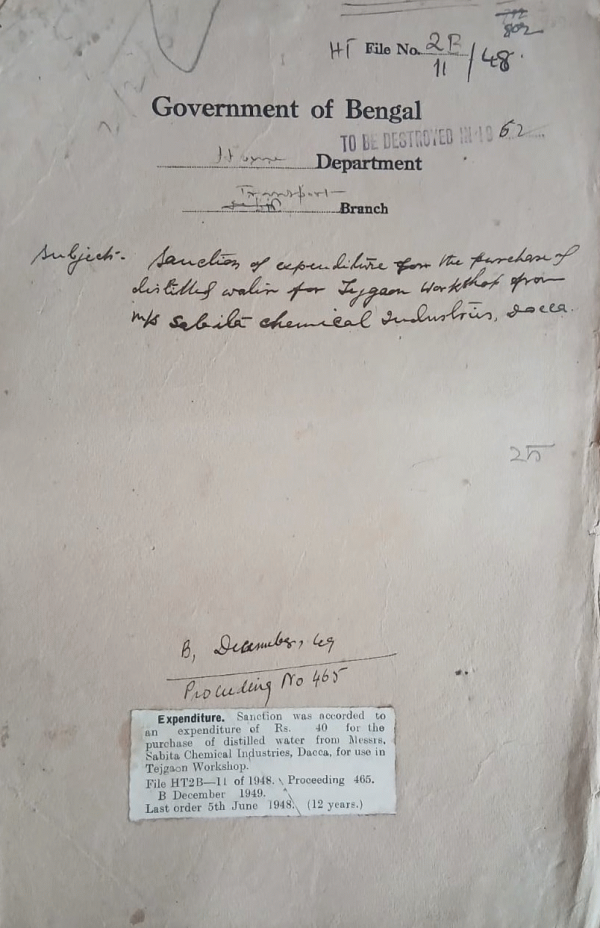 802
HT File No. 2B
11/48.
Government of Bengal
TO BE DESTROYED IN 1962
Home Department
Transport
Branch
Subject:- Sanction of expenditure for the purchase of
distilled water for Tejgaon Workshop from
M/s Sabita Chemical Industries, Dacca.
B, December, 49
Proceeding No 465
Expenditure. Sanction was accorded to
an expenditure of Rs. 40 for the
purchase of distilled water from Messrs.
Sabita Chemical Industries, Dacca, for use in
Tejgaon Workshop.
File HT2B—11 of 1948. Proceeding 465.
B December 1949.
Last order 5th June 1948. (12 years.)